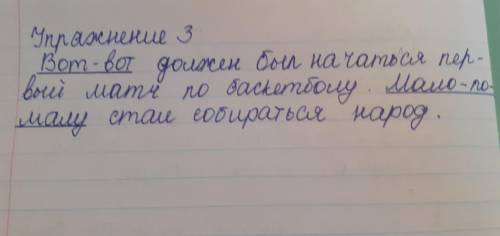 Упражнение 3
Вот-вот должен был начаться пер-
вый матч по баскетболу. Мало-по-
малу стал собираться народ.